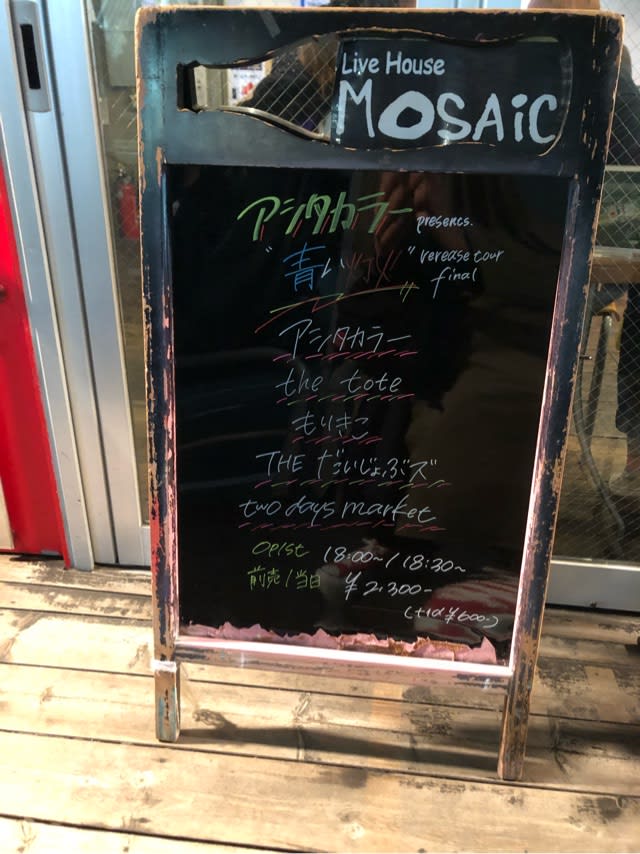 Live House
MOSAiC
アシタカラー presents.
"青い灯火" rerease tour
final
アシタカラー
the tote
もりきこ
THE だいじょぶズ
two days market
OP/St 18:00~/18:30~
前売/当日 ¥2,300-
(+1d ¥600-)